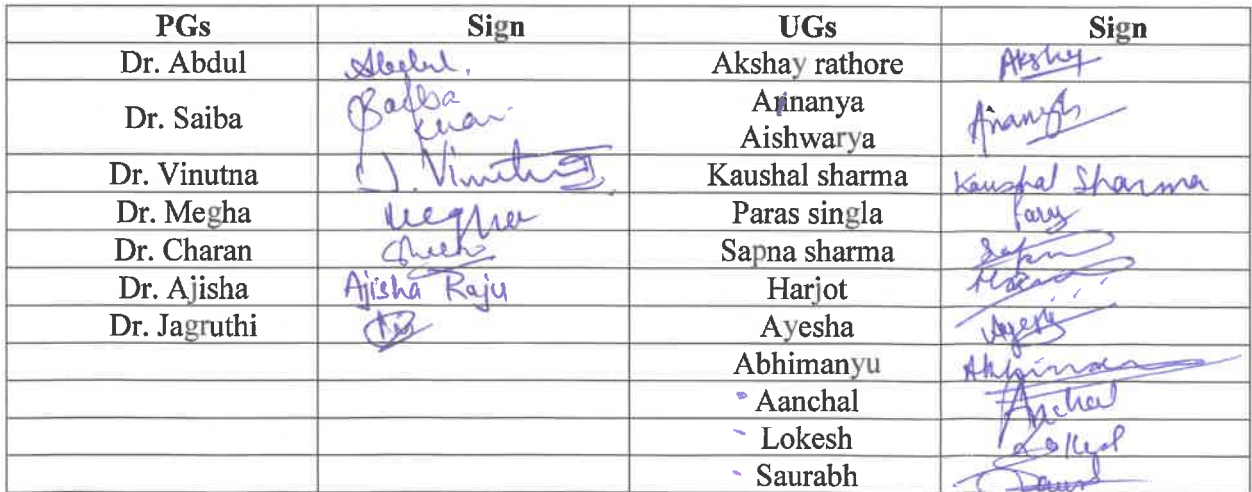 PGs Sign UGs Sign
Dr. Abdul Abdul. Akshay rathore Akshay
Dr. Saiba Saiba Khan Arinanya Aishwarya Ananya
Dr. Vinutna J. Vinutna Kaushal sharma Kaushal Sharma
Dr. Megha Megha Paras singla Paras
Dr. Charan Sapna sharma Sapna
Dr. Ajisha Ajisha Raju Harjot
Dr. Jagruthi Ayesha Ayesha
Abhimanyu
Aanchal Anchal
Lokesh Lokesh
Saurabh